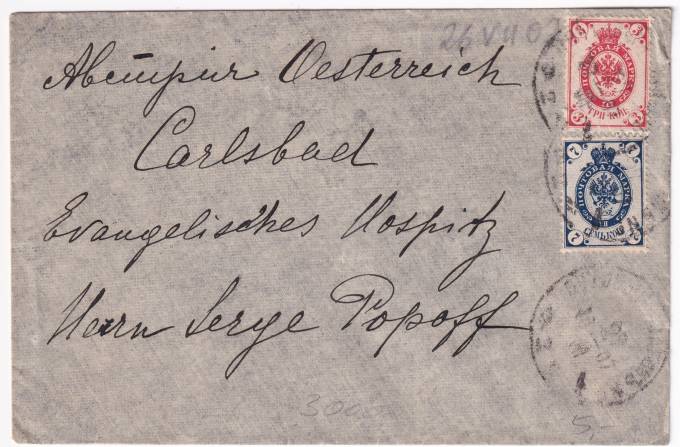 26 VII 0
Австрия Oesterreich
Carlsbad
Evangelisches Hospitz
Herrn Serge Popoff
3
3
ПОЧТОВАЯ МАРКА
ТРИ КОП.
3
7
7
ПОЧТОВАЯ МАРКА
СЕМЬ КОП.
7
7
5-